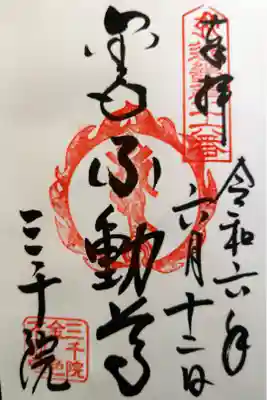 奉拝
令和六年
六月十二日
金色不動尊
三千院
三千院